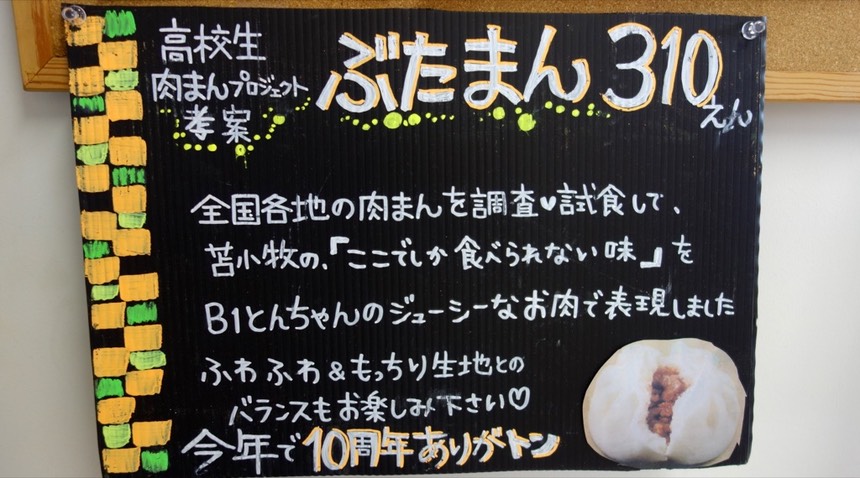 高校生
肉まんプロジェクト
孝案
ぶたまん 310えん
全国各地の肉まんを調査♥試食して、
苫小牧の、「ここでしか食べられない味」を
B1とんちゃんのジューシーなお肉で表現しました
ふわふわ&もっちり生地との
バランスもお楽しみ下さい♡
今年で10周年ありがトン